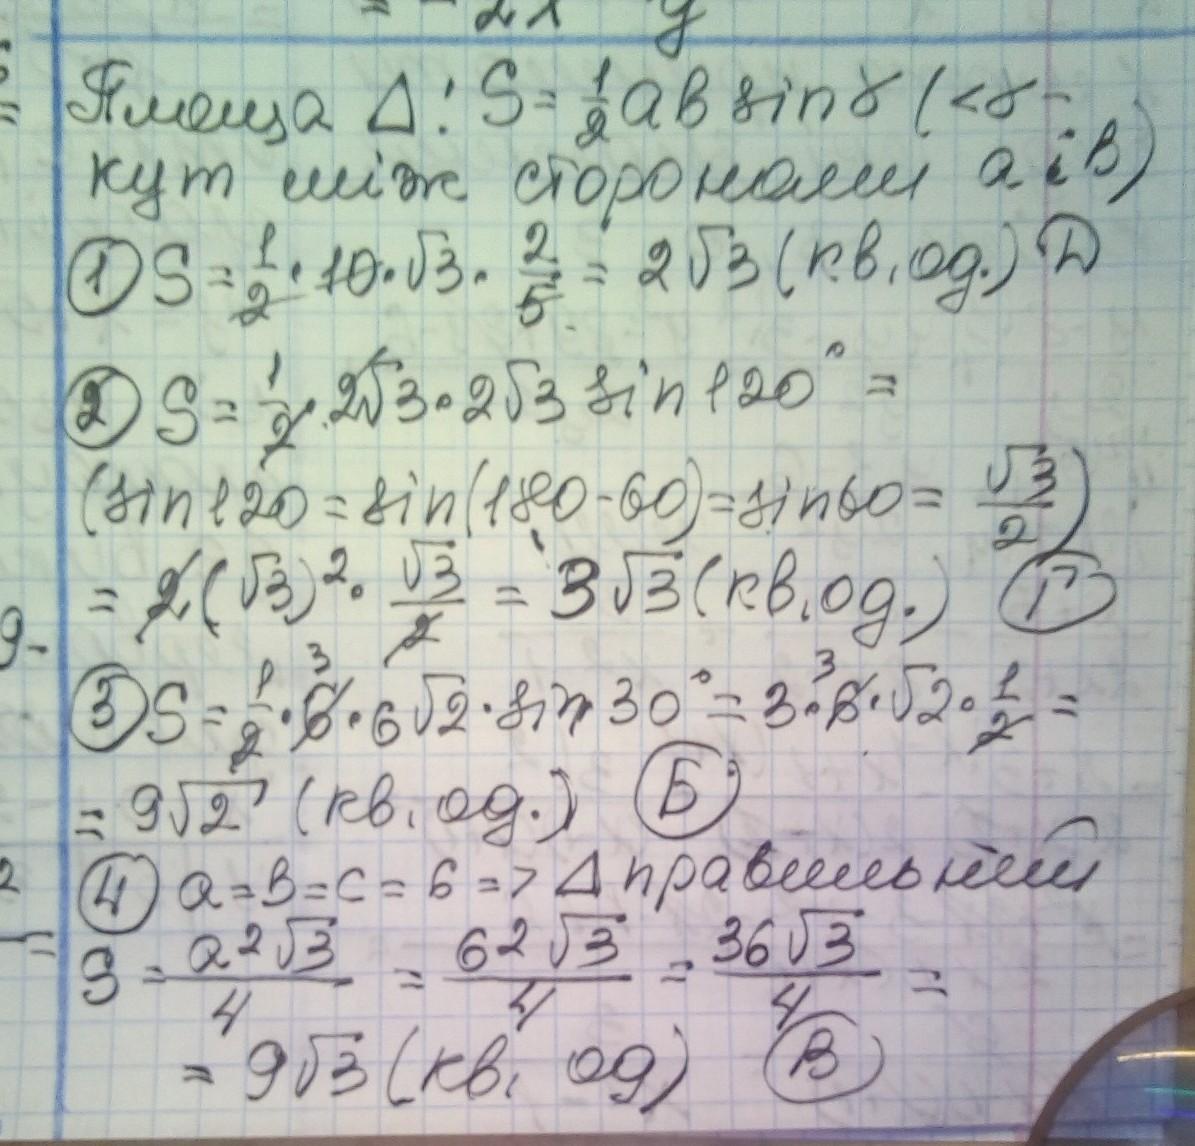 = - 2x y
Площа Δ: S = 1/2 ab sin γ (<γ -
кут між сторонами a і b)
① S = 1/2 · 10 · √3 · 2/5 = 2√3 (кв. од.) Д
② S = 1/2 · 2√3 · 2√3 sin 120° =
(sin 120 = sin(180-60) = sin 60 = √3/2)
= 2(√3)² · √3/2 = 3√3 (кв. од.) Г
③ S = 1/2 · 6 3 · 6√2 · sin 30° = 3 · 6 3 · √2 · 1/2 =
= 9√2 (кв. од.) Б
④ a = b = c = 6 => Δ правильний
S = a²√3/4 = 6²√3/4 = 36√3/4 =
= 9√3 (кв. од) В